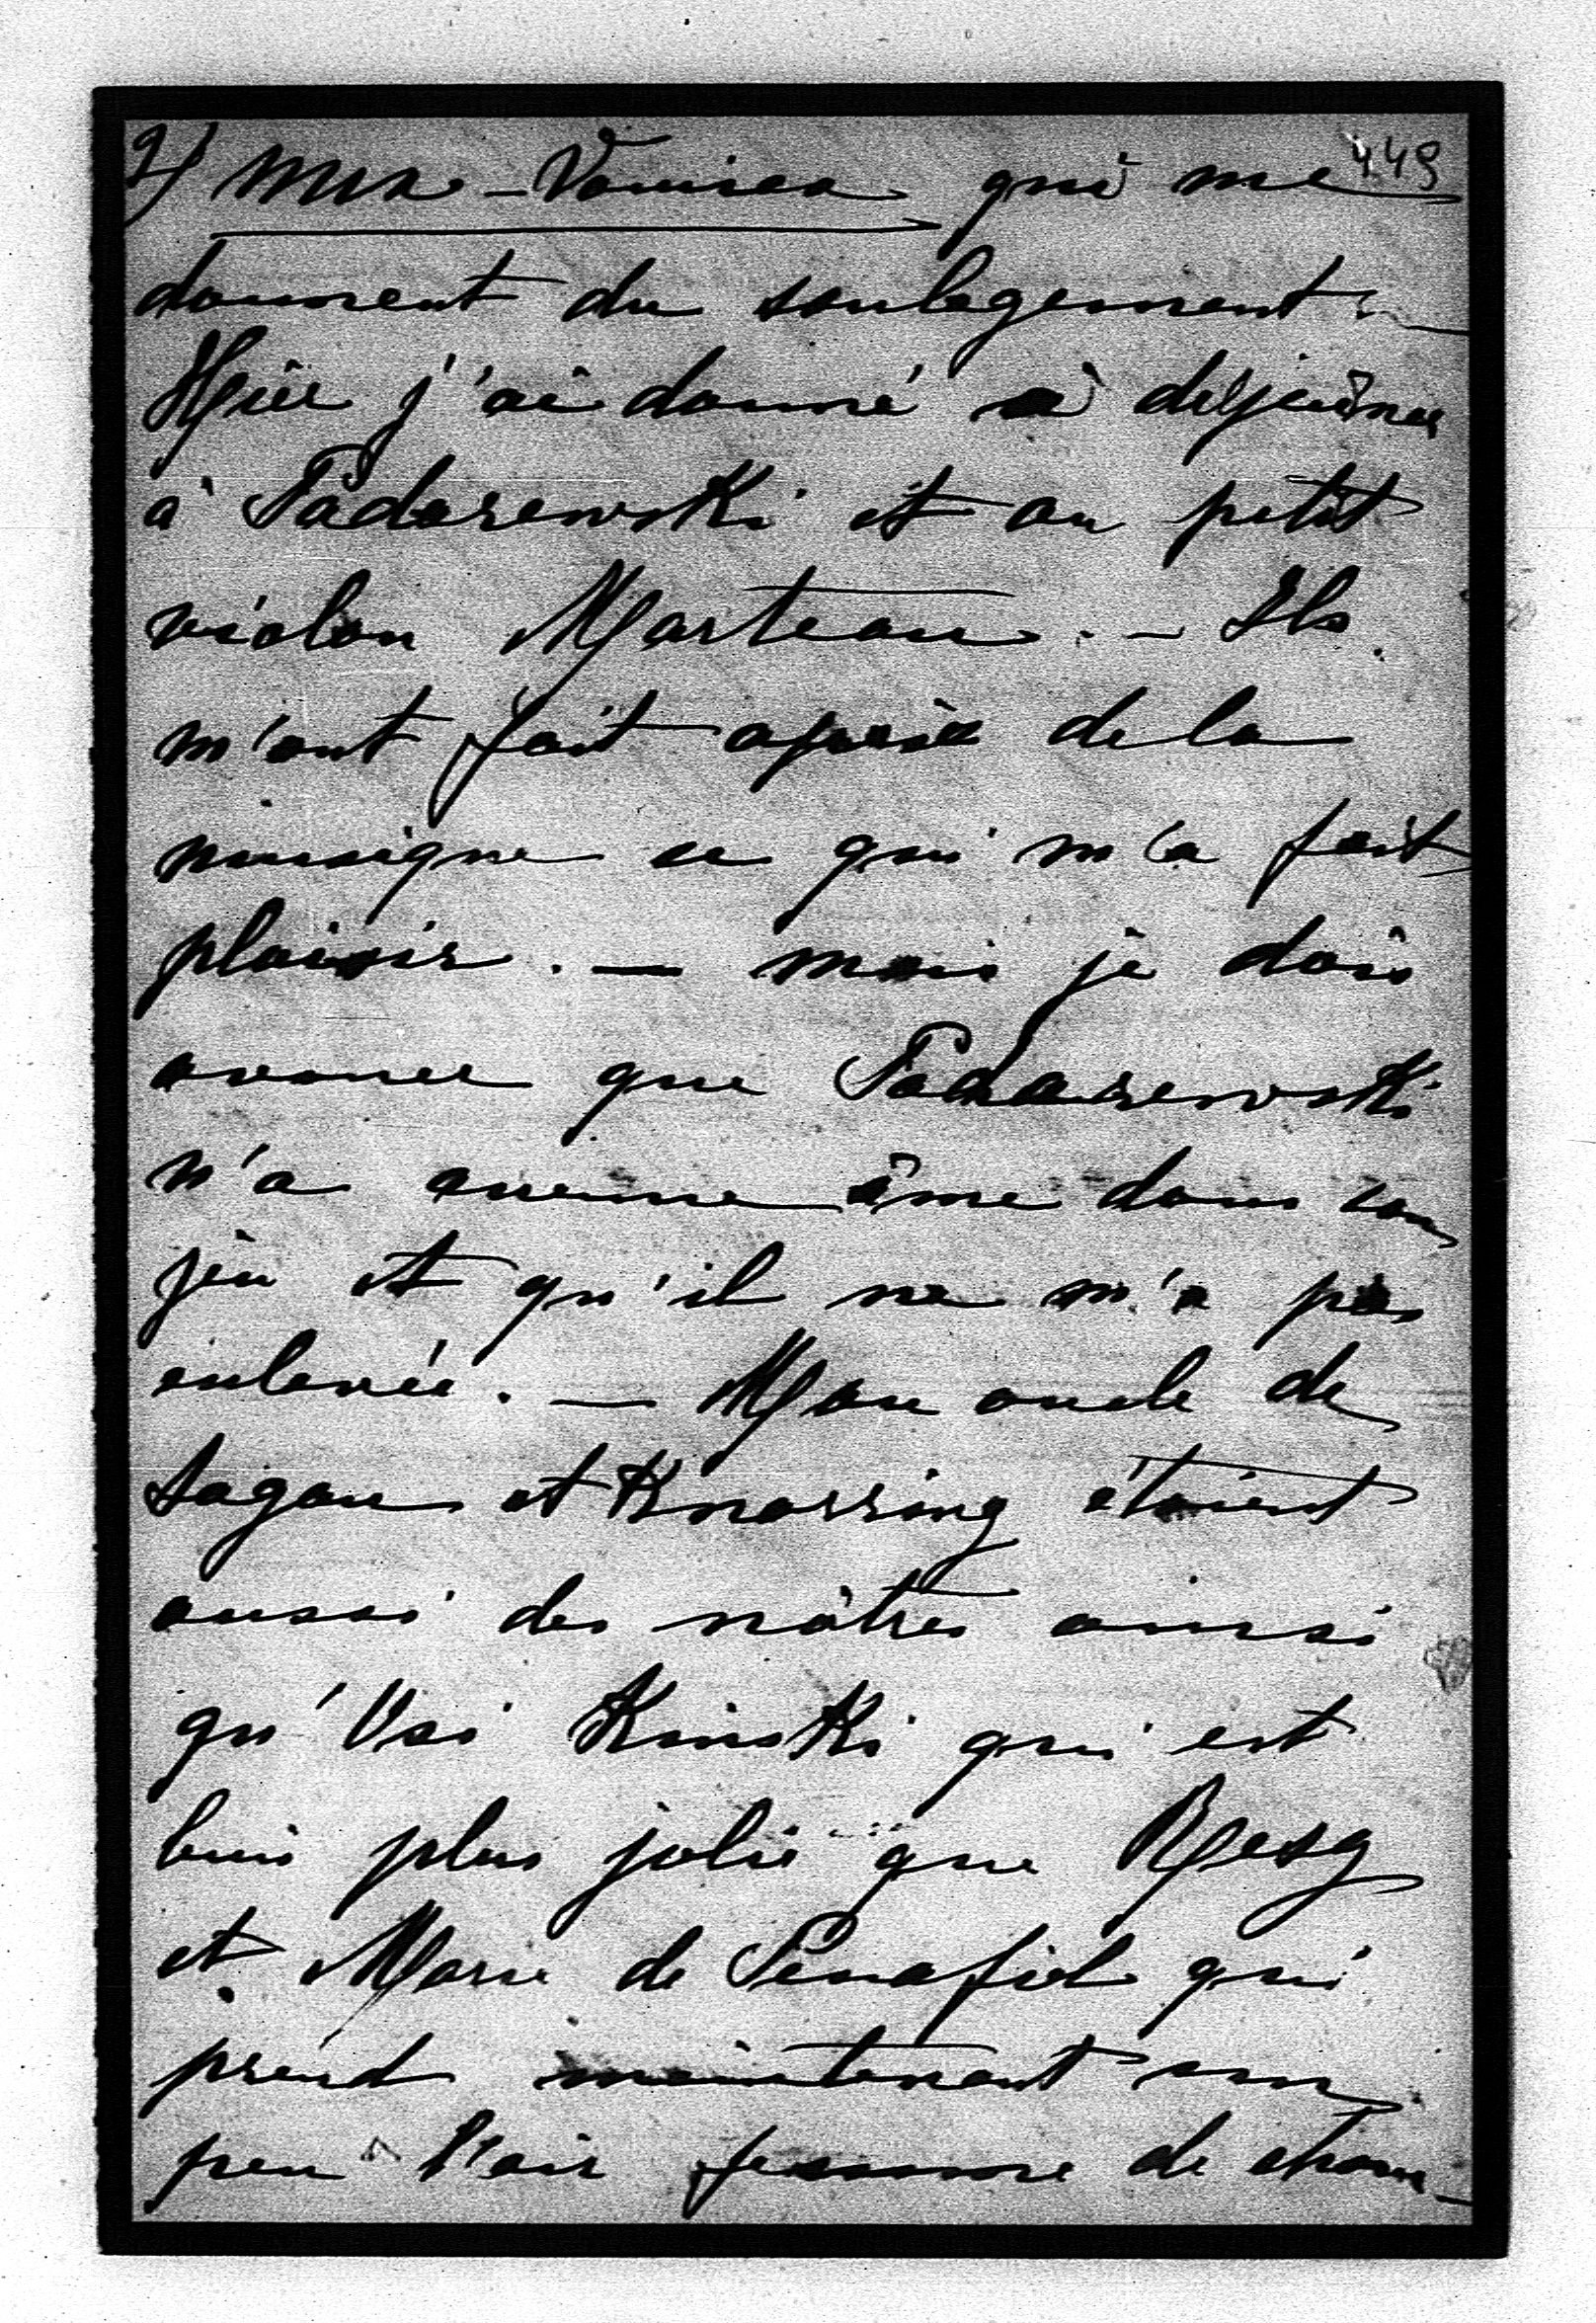 2) nux-Vomica qui me 449
donnent du soulagement. –
Hier j'ai donné à déjeûner
à Padarewski et au petit
violon Marteau. – Ils
m'ont fait après de la
musique ce qui m'a fait
plaisir. – mais je dois
avouer que Padarewski
n'a aucune âme dans son
jeu et qu'il ne m'a pas
enlevée. – Mon oncle de
Sagan et Knorring étaient
aussi des nôtres ainsi
qu' Kinski qui est
bien plus jolie que
et Marie de Penafiel qui
prend maintenant un
peu l'air femme de cham-